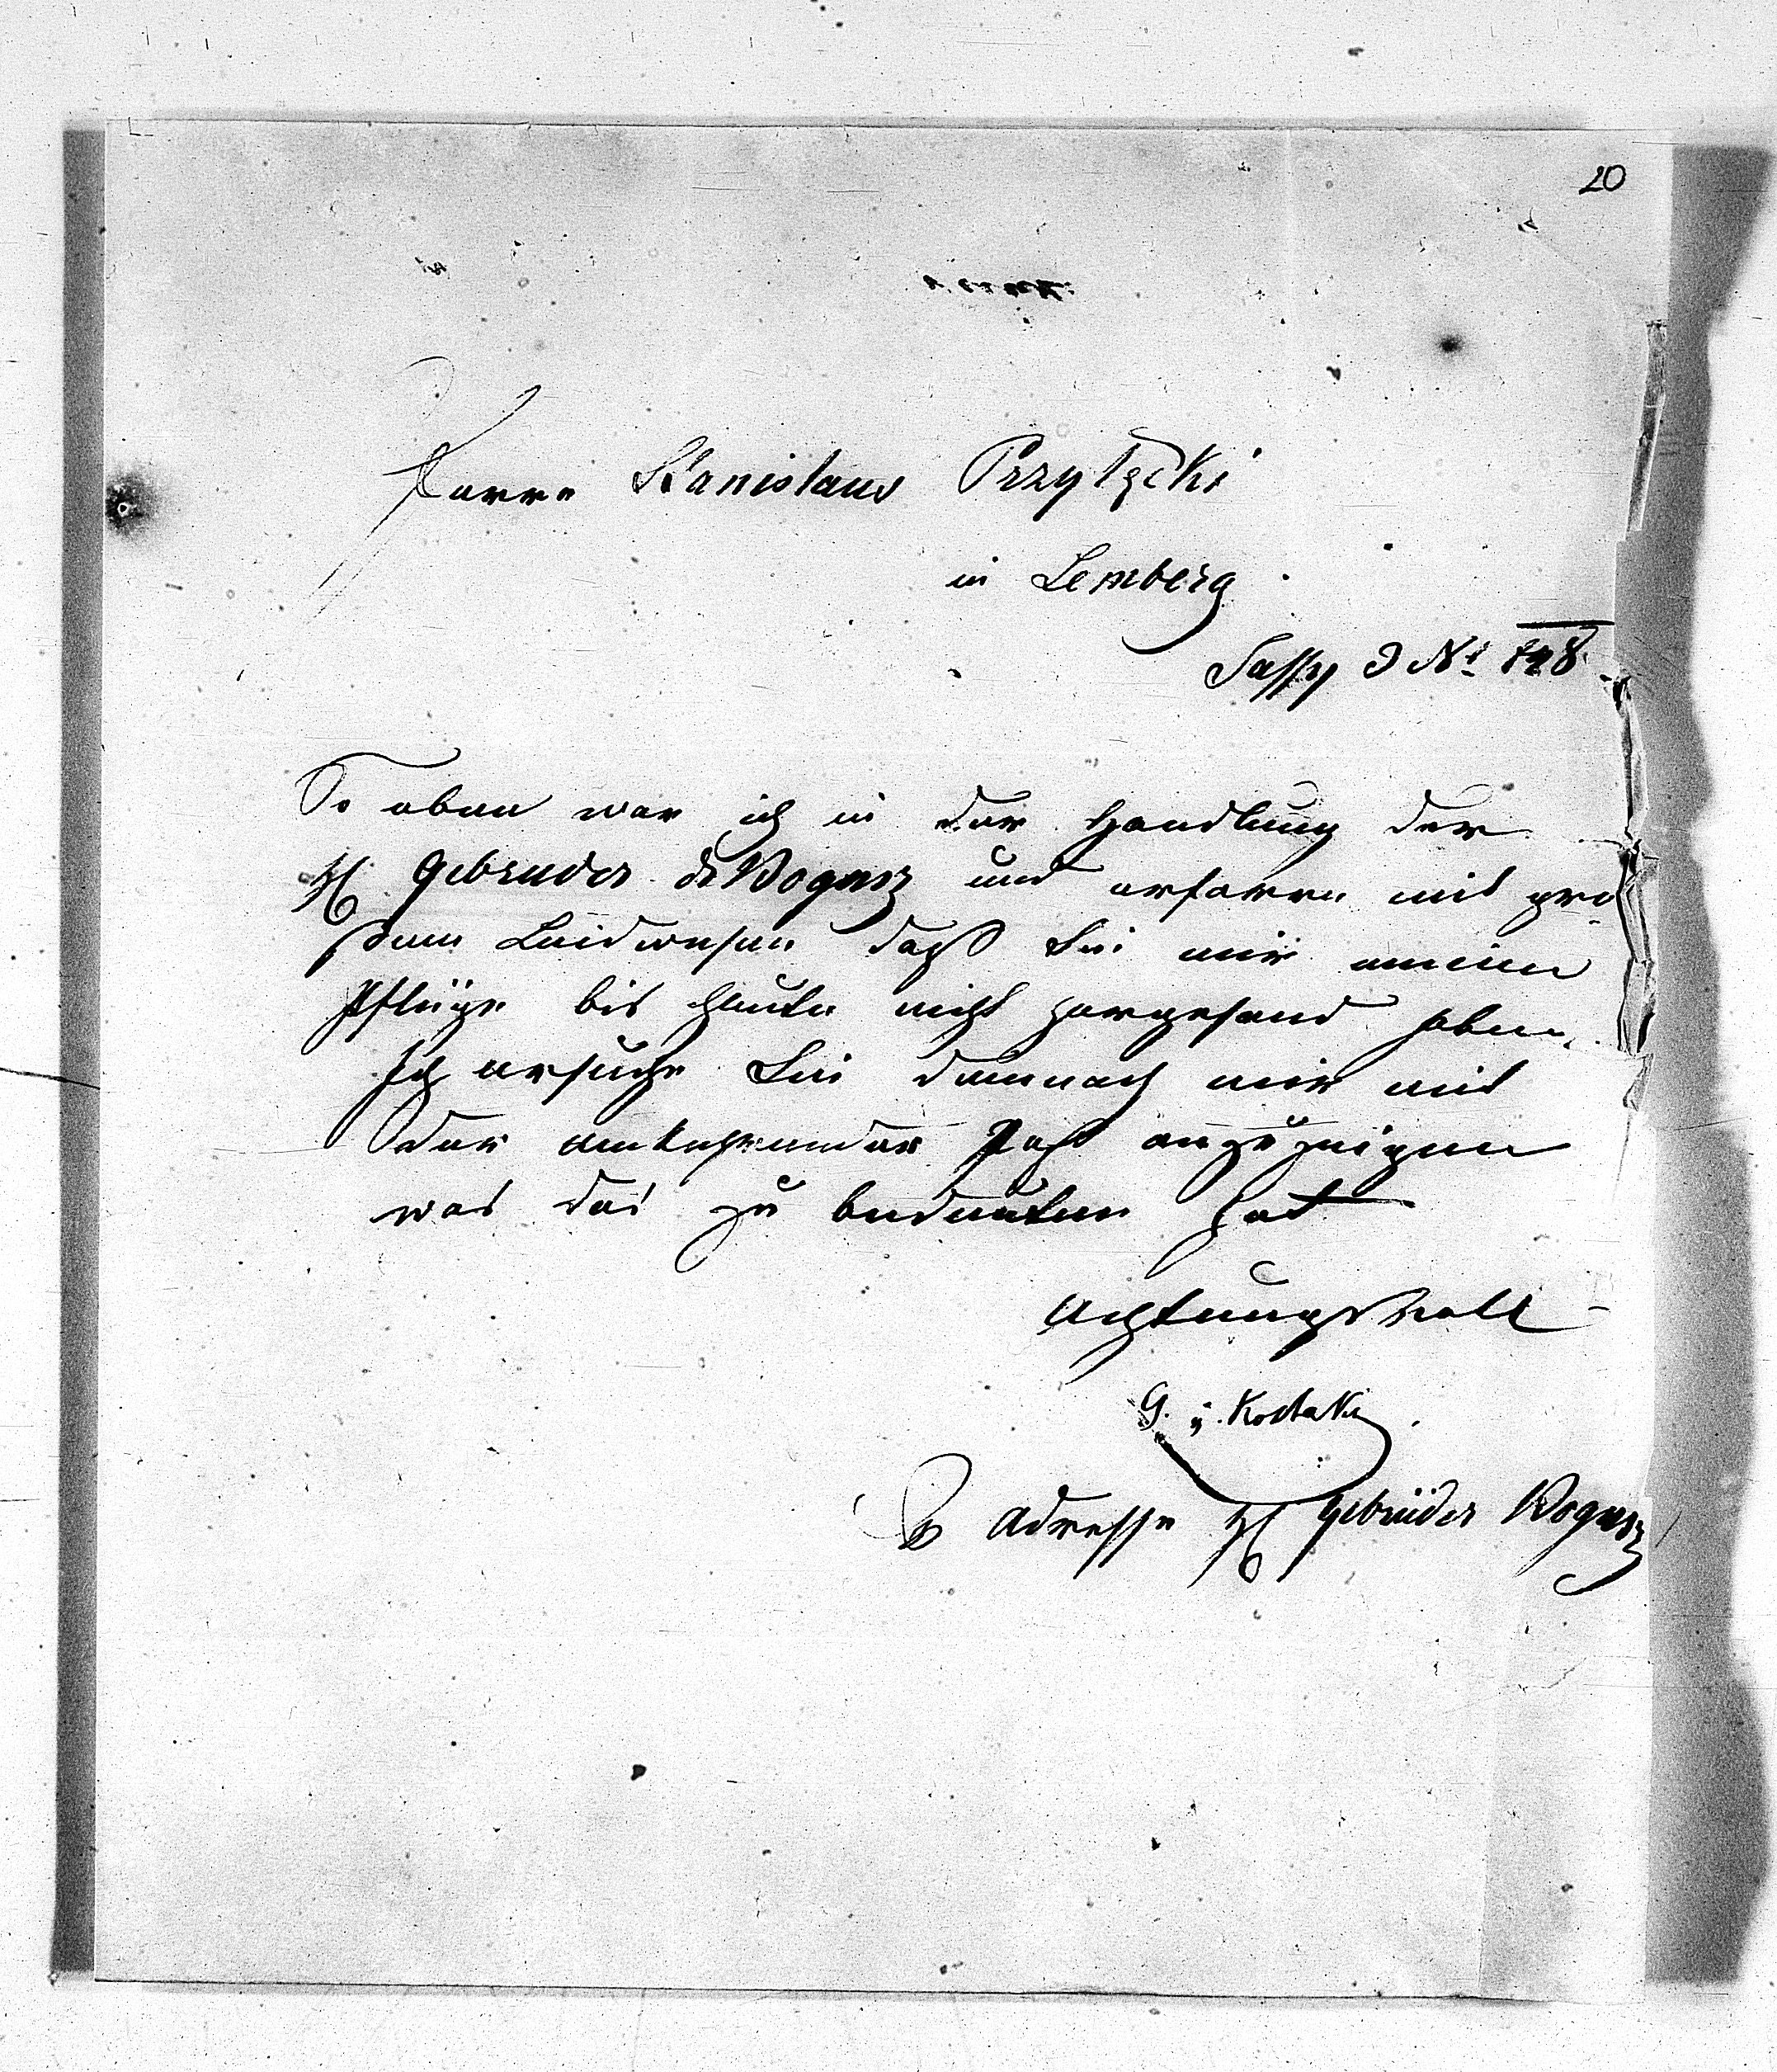 20
Herrn Stanislaus Przyłęcki
in Lemberg
Jassy
So eben war ich in der Handlung der
H Gebruder und erfarre mit gro
ßem Leidwesen daß Sie mir meine
Pflüge bis heute nicht hergesand haben.
Ich ersuche Sie demnach mir mit
der umkehrender Post anzuzeigen
was das zu bedeuten hat
Achtungsvoll
G. Kostaki
Adresse H Gebrüder